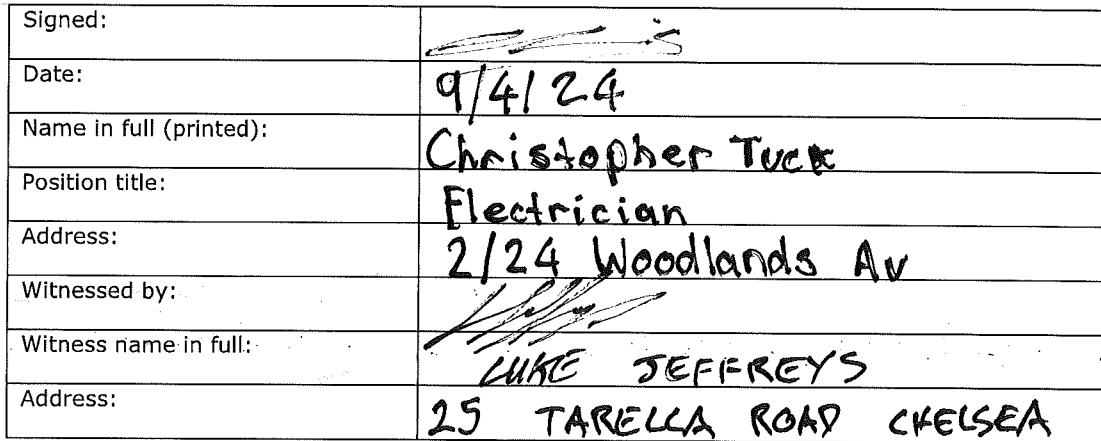 Signed:
Date: 9/4/24
Name in full (printed): Christopher Tuck
Position title: Electrician
Address: 2/24 Woodlands Av
Witnessed by:
Witness name in full: LUKE JEFFREYS
Address: 25 TARELLA ROAD CHELSEA